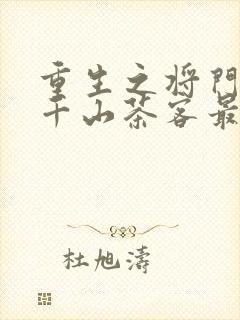 重生之将门
千山茶客最
杜旭濤